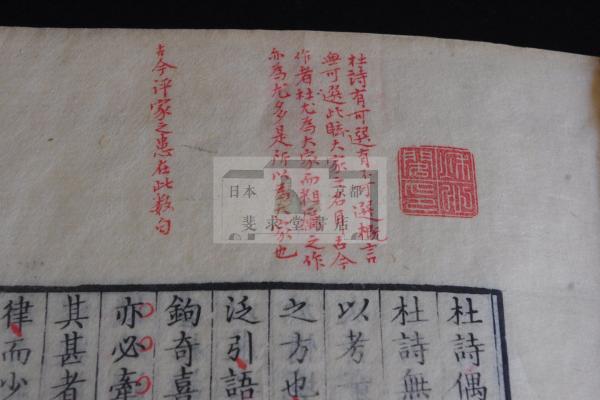 杜詩有可選有不可選概言
無可選此賊大家之名自古今
作者杜尤為大家而粗率之作
亦為尤多是所以為大家也
古今评家之患在此数句
日本 京都
斐求堂書店
杜詩偶
杜詩無
以考
之方也
泛引語
鉤奇喜
亦必牽
其甚者
律而少